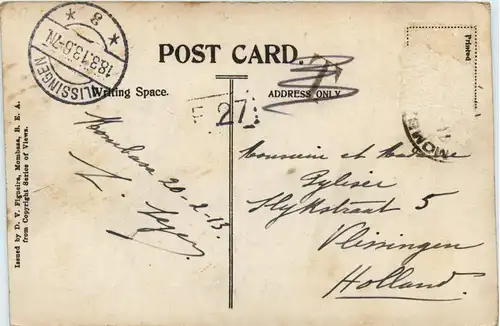 POST CARD.
Writing Space.
ADDRESS ONLY
Printed
VLISSINGEN
18.3.13.5-7N.
* 8 *
T
27
MOMB
Mombasa 20-2-13.
Monsieur et Madame
5
Vlissingen
Holland.
Issued by D. V. Figueira, Mombasa, B. E. A.
from Copyright Series of Views.